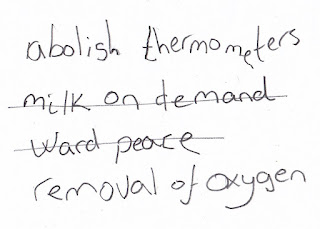 abolish thermometers
milk on demand
ward peace
removal of oxygen